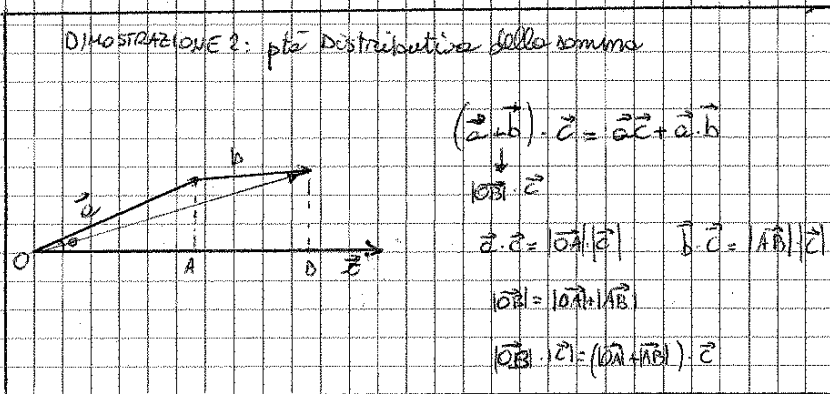 DIMOSTRAZIONE 2: ptà Distributiva della somma
(a⃗+b⃗)·c⃗ = a⃗c⃗ + a⃗·b⃗
↓
|OB⃗|·c⃗
a⃗·c⃗ = |OA⃗|·|c⃗| b⃗·c⃗ = |AB⃗||c⃗|
|OB⃗| = |OA⃗|+|AB⃗|
|OB⃗|·|c⃗| = (|OA⃗|+|AB⃗|)·c⃗
b
a⃗
O A B c⃗